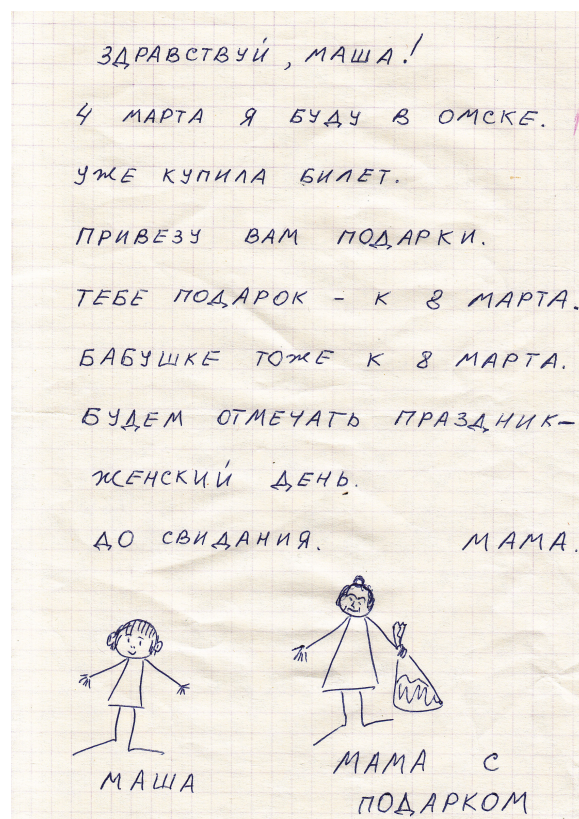 ЗДРАВСТВУЙ, МАША!
4 МАРТА Я БУДУ В ОМСКЕ.
УЖЕ КУПИЛА БИЛЕТ.
ПРИВЕЗУ ВАМ ПОДАРКИ.
ТЕБЕ ПОДАРОК - К 8 МАРТА.
БАБУШКЕ ТОЖЕ К 8 МАРТА.
БУДЕМ ОТМЕЧАТЬ ПРАЗДНИК-
ЖЕНСКИЙ ДЕНЬ.
ДО СВИДАНИЯ. МАМА.
МАША
МАМА С
ПОДАРКОМ